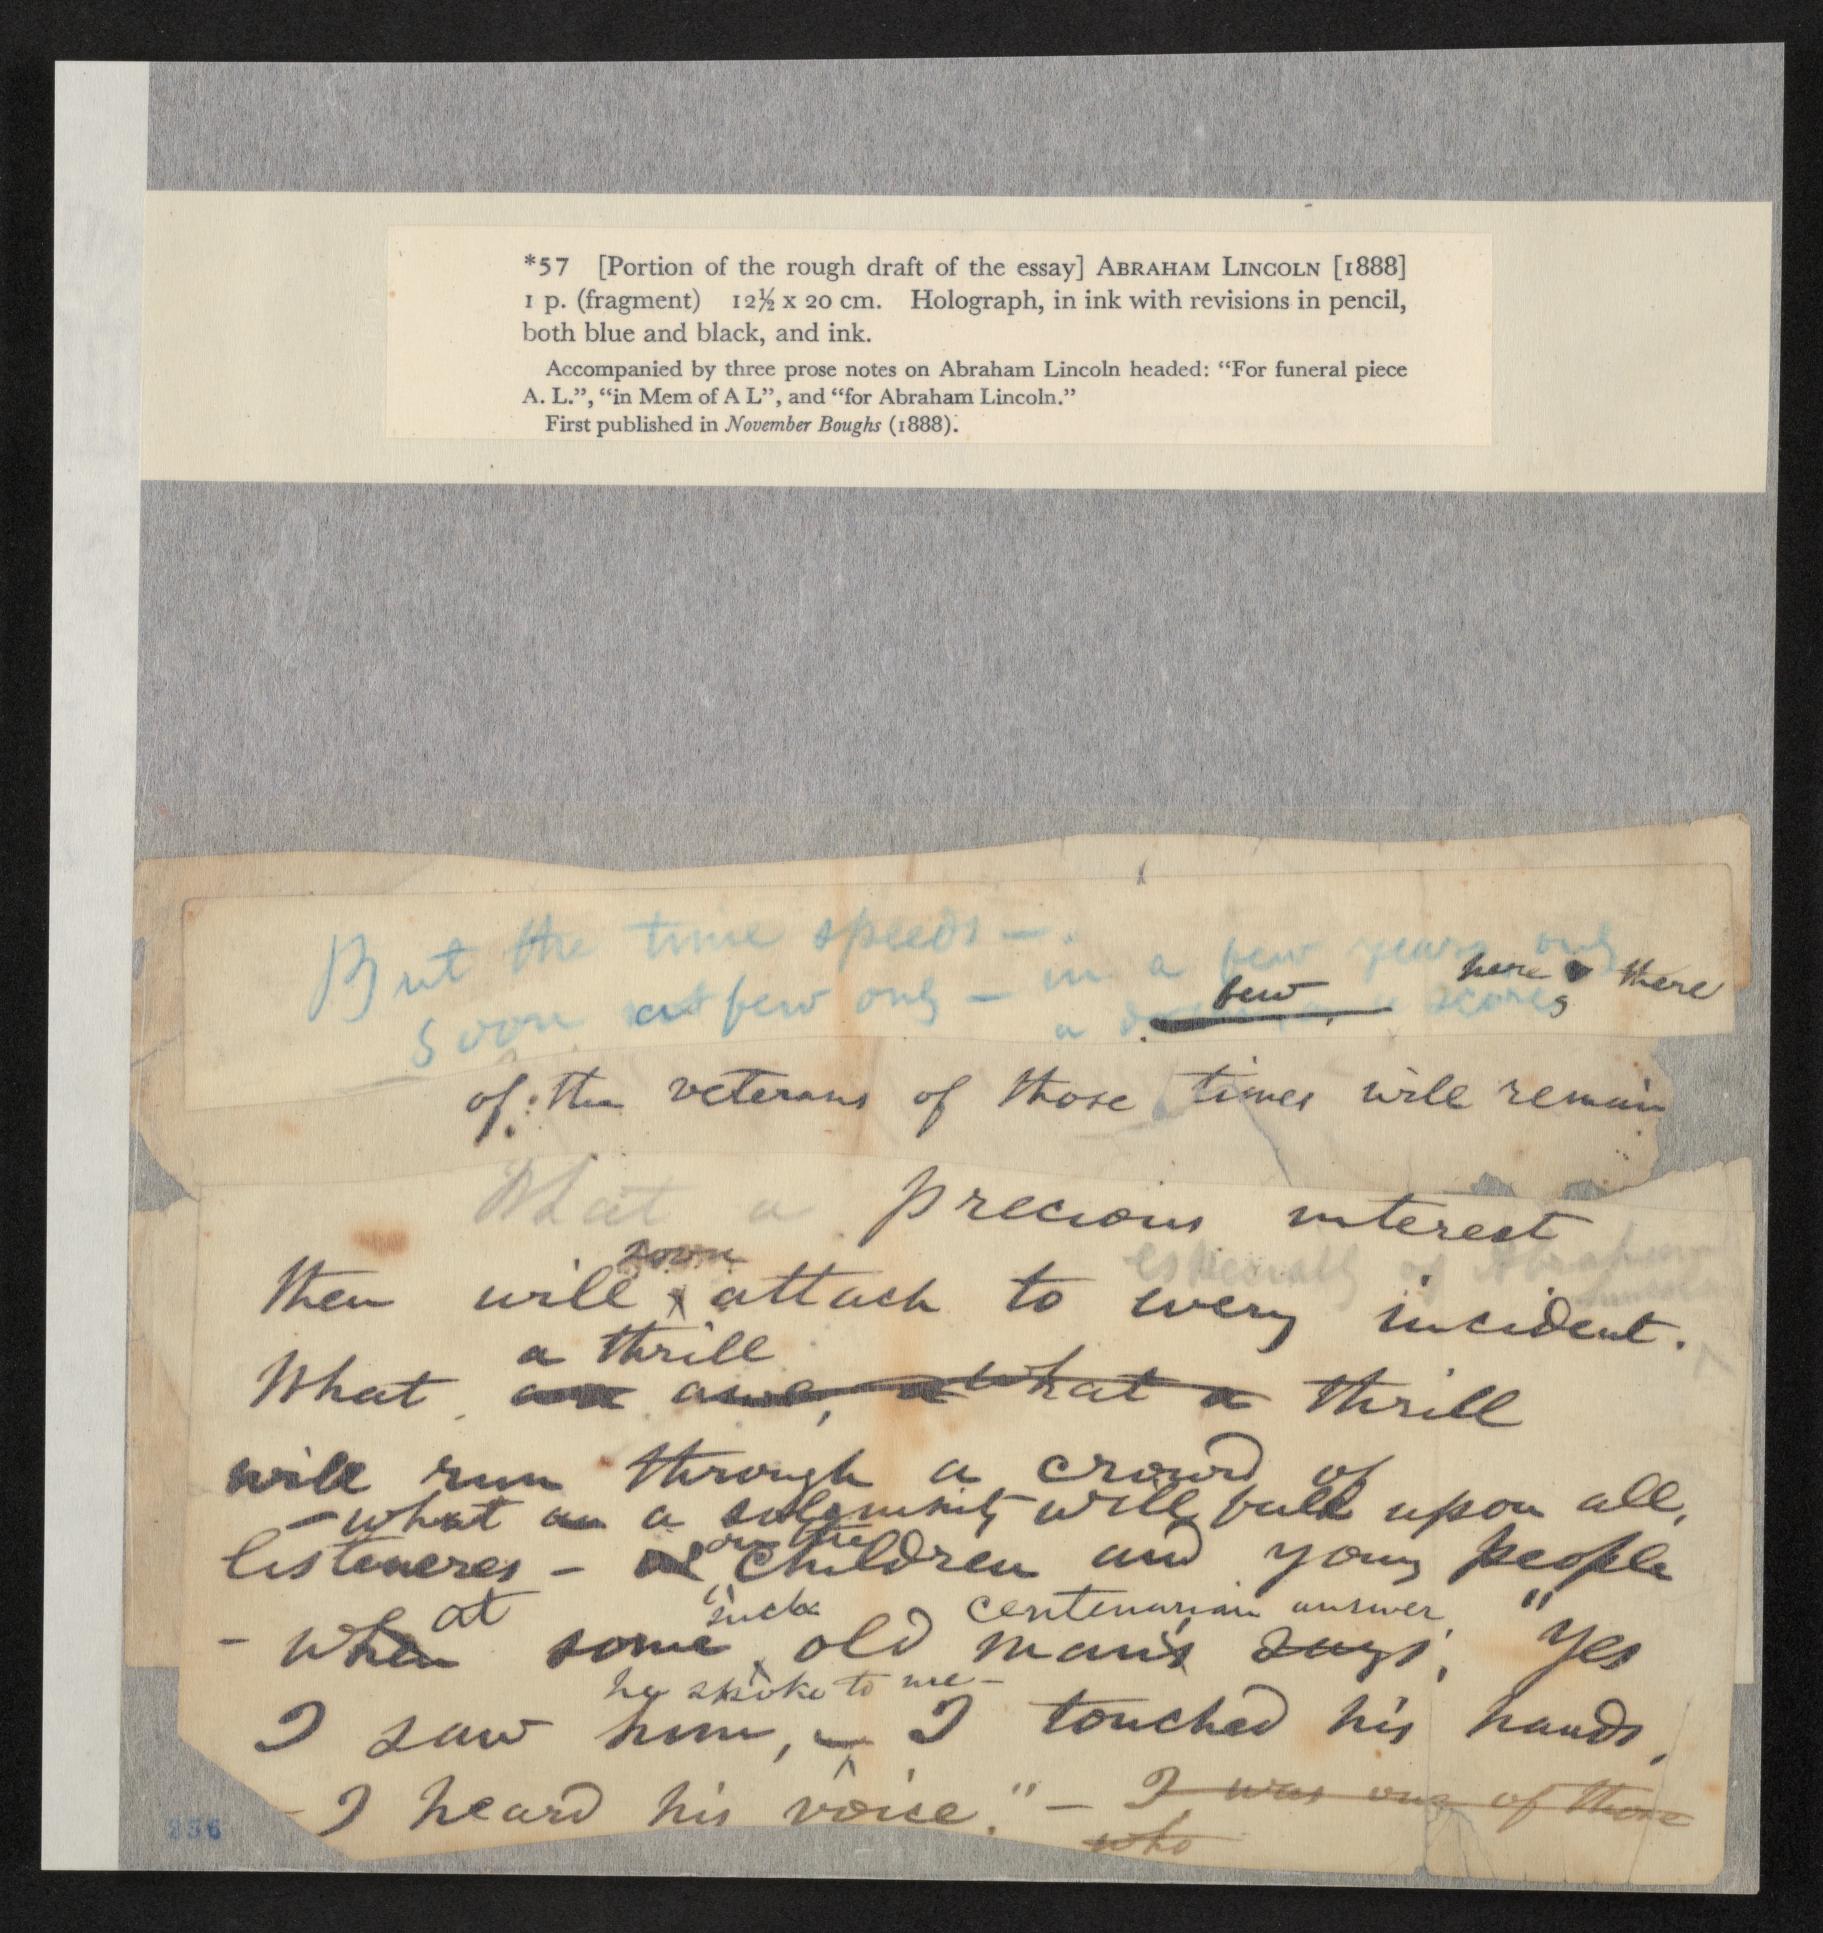 *57 [Portion of the rough draft of the essay] ABRAHAM LINCOLN [1888]
1 p. (fragment) 12½ x 20 cm. Holograph, in ink with revisions in pencil,
both blue and black, and ink.
Accompanied by three prose notes on Abraham Lincoln headed: "For funeral piece
A. L.", "in Mem of A L", and "for Abraham Lincoln."
First published in November Boughs (1888).
But the time speeds —.
in a few years only
here there
Soon few only —
few
a scores
of the veterans of those times will remain
What a precious interest
soon
especially of Abraham
Lincoln
then will attach to every incident.
a thrill
What an awe, what a thrill
will run through a crowd of
— what an a solemnity will fall upon all,
listeneres — on the children and young people
at
such
centenarian answer
— when some old man's says, "Yes
he spoke to me —
I saw him, — I touched his hands,
— I heard his voice." — I was one of those
who
236